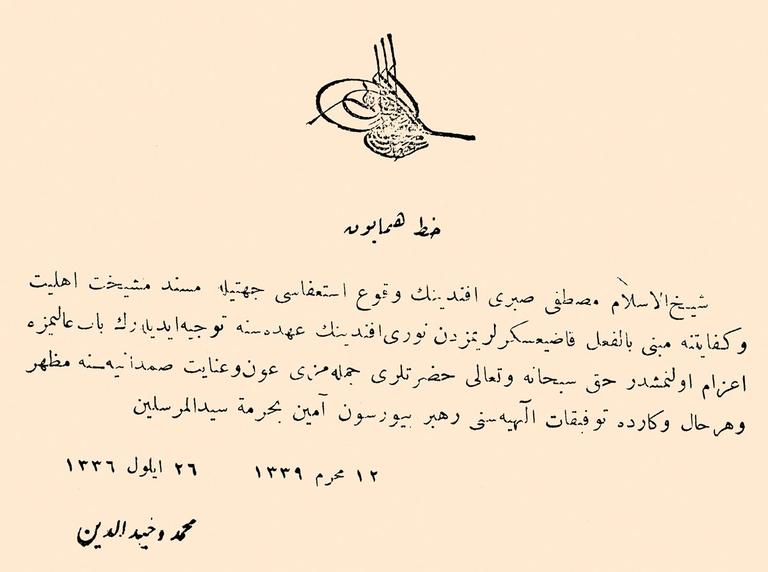 خط همایون
شیخ‌الاسلام مصطفی صبری افندینك وقوع استعفاسی جهتیله مسند مشیخت اهلیت
وکفایتنه مبنی بالفعل قاضیعسکرلریمزدن نوری افندینك عهده‌سنه توجیه ایدیله‌رك باب عالیمزه
اعزام اولنمشدر حق سبحانه وتعالی حضرتلری جمله‌مزی عون وعنایت صمدانیه‌سنه مظهر
وهر حال وکارده توفیقات الٓهیه‌سنی رهبر بیورسون آمین بحرمة سیدالمرسلین
١٢ محرم ١٣٣٩ ٢٦ ایلول ١٣٣٦
محمد وحیدالدین